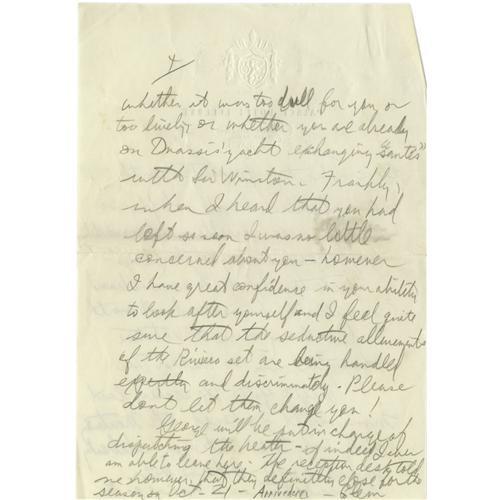 4
whether it was too dull for you or
too lively, or whether you are already
on Onassis' yacht exchanging "santés"
with Sir Winston. Frankly,
when I heard that you had
left so soon I was no little
concerned about you - however
I have great confidence in your ability
to look after yourself and I feel quite
sure that the seductive allurements
of the Riviera set are being handled
expertly and discriminately. Please
don't let them change you!
George will be put in charge of
dispatching the heater - if indeed I ever
am able to leave here. The reception desk told
me however, that they definitely close for the
season on Oct - 21 -